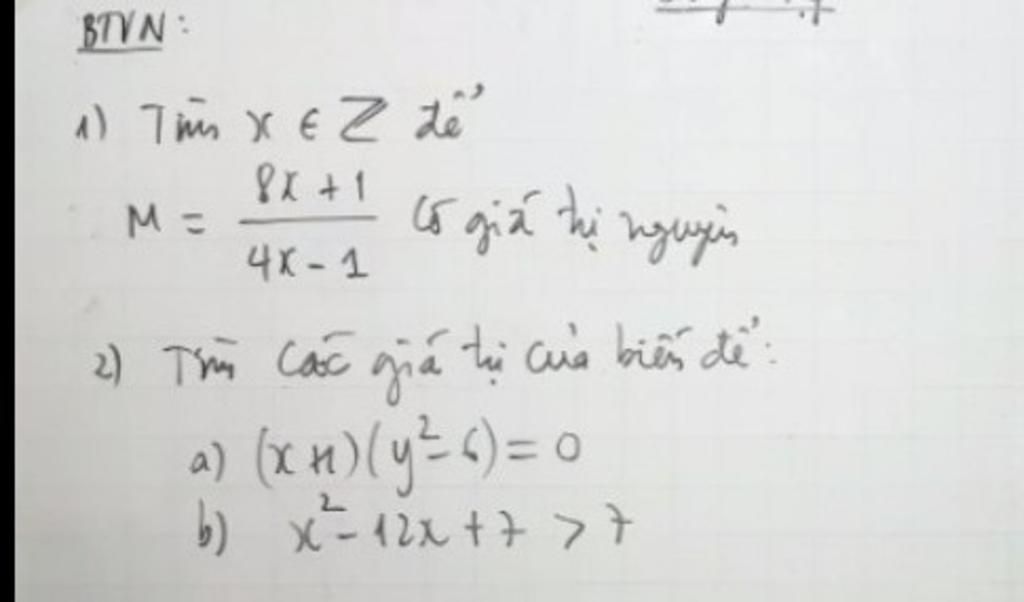 BTVN:
1) Tìm x ∈ Z để
M = \frac{8x + 1}{4x - 1} có giá trị nguyên
2) Tìm các giá trị của biến để:
a) (x+1)(y² - 6) = 0
b) x² - 12x + 7 > 7